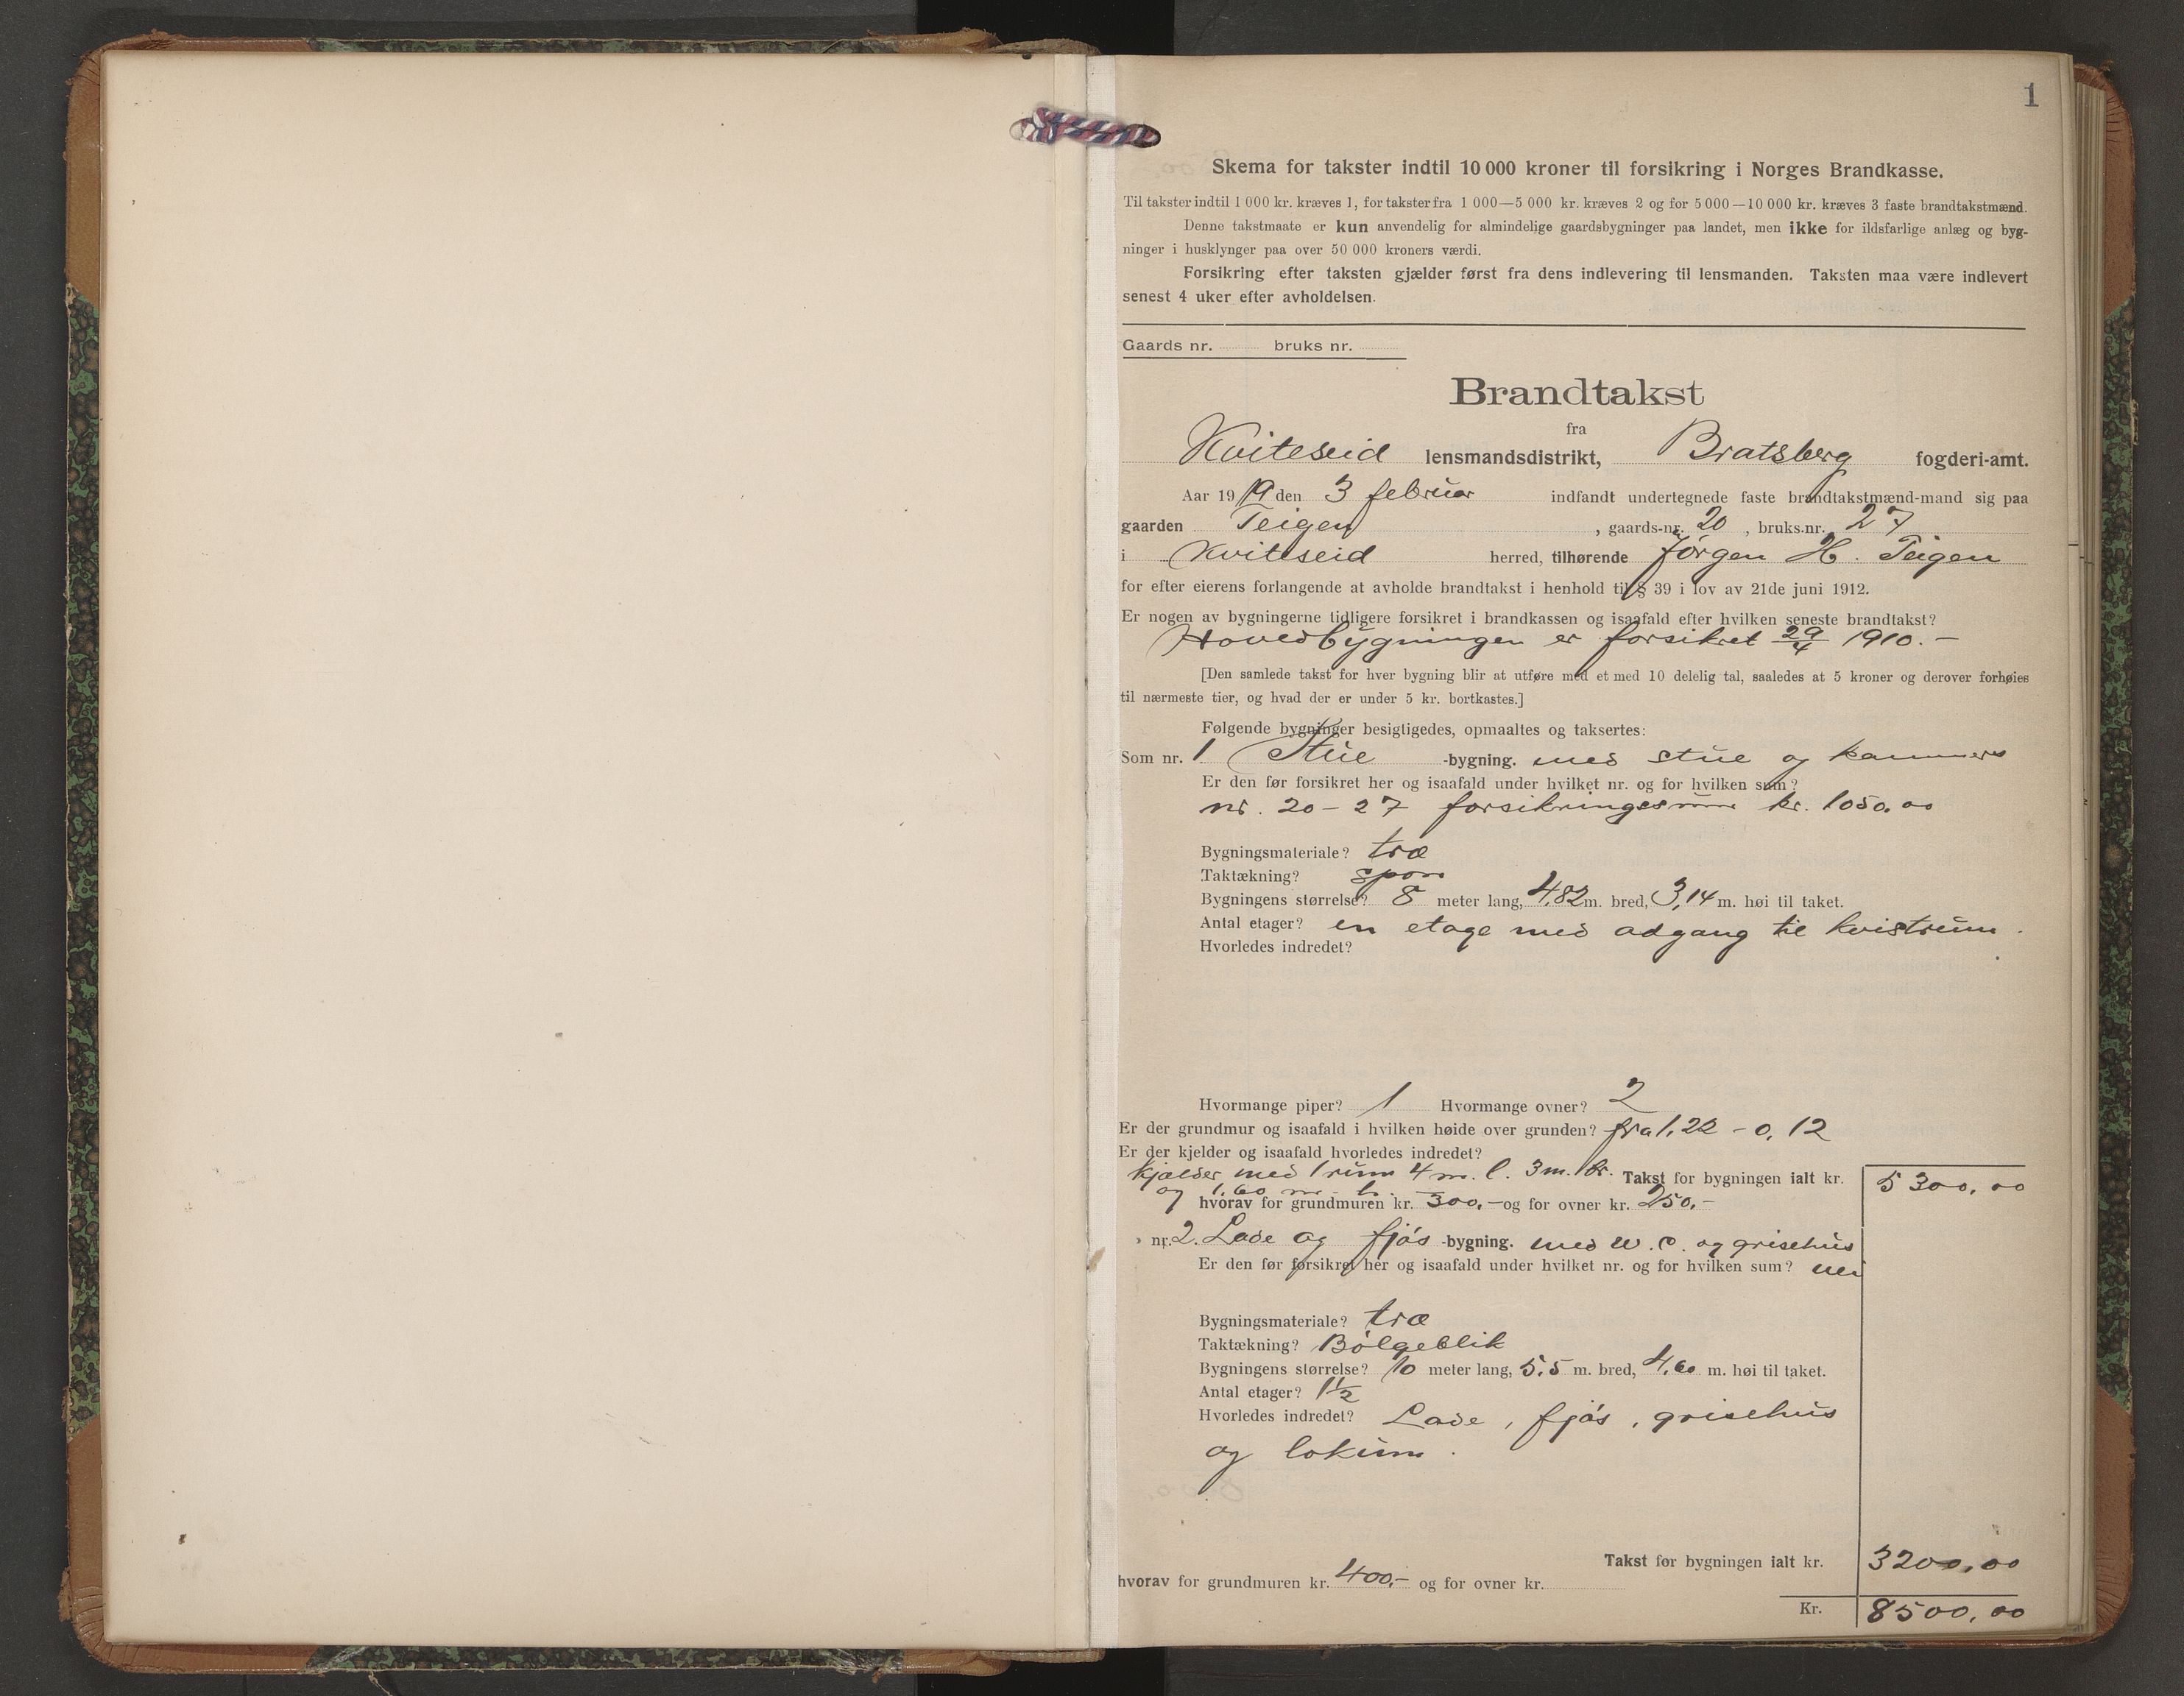 1
Skema for takster indtil 10 000 kroner til forsikring i Norges Brandkasse.
Til takster indtil 1 000 kr. kræves 1, for takster fra 1 000—5 000 kr. kræves 2 og for 5 000—10 000 kr. kræves 3 faste brandtakstmænd.
Denne takstmaate er kun anvendelig for almindelige gaardsbygninger paa landet, men ikke for ildsfarlige anlæg og byg-
ninger i husklynger paa over 50 000 kroners værdi.
Forsikring efter taksten gjælder først fra dens indlevering til lensmanden. Taksten maa være indlevert
senest 4 uker efter avholdelsen.
Gaards nr. bruks nr.
Brandtakst
fra
Kviteseid lensmandsdistrikt, Bratsberg fogderi-amt.
Aar 1919 den 3 februar indfandt undertegnede faste brandtakstmænd-mand sig paa
gaarden Teigen, gaards-nr. 20, bruks.nr. 27
i Kviteseid herred, tilhørende Jørgen H. Teigen
for efter eierens forlangende at avholde brandtakst i henhold til § 39 i lov av 21de juni 1912.
Er nogen av bygningerne tidligere forsikret i brandkassen og isaafald efter hvilken seneste brandtakst?
Hovedbygningen er forsikret 29/4 1910. —
[Den samlede takst for hver bygning blir at utføre med et med 10 delelig tal, saaledes at 5 kroner og derover forhøies
til nærmeste tier, og hvad der er under 5 kr. bortkastes.]
Følgende bygninger besigtigedes, opmaaltes og taksertes:
Som nr. 1 Stue -bygning. med stue og kammers
Er den før forsikret her og isaafald under hvilket nr. og for hvilken sum?
nr. 20 - 27 forsikringssum kr. 1050.00
Bygningsmateriale? træ
Taktækning? spon
Bygningens størrelse? 8 meter lang, 4,82 m. bred, 3,14 m. høi til taket.
Antal etager? en etage med adgang til kvistrum.
Hvorledes indredet?
Hvormange piper? 1 Hvormange ovner? 2
Er der grundmur og isaafald i hvilken høide over grunden? fra 1,22 - 0,12
Er der kjelder og isaafald hvorledes indredet?
kjælder med 1 rum 4 m. l. 3 m. br. Takst for bygningen ialt kr. 5300,00
og 1,60 m. h.
hvorav for grundmuren kr. 300,- og for ovner kr. 250,-
» nr. 2. Lade og fjøs -bygning. med w.c. og grisehus
Er den før forsikret her og isaafald under hvilket nr. og for hvilken sum? nei
Bygningsmateriale? træ
Taktækning? Bølgeblik
Bygningens størrelse? 10 meter lang, 5,5 m. bred, 4,60 m. høi til taket.
Antal etager? 1 1/2
Hvorledes indredet? Lade, fjøs, grisehus
og lokum.
Takst for bygningen ialt kr. 3200,00
hvorav for grundmuren kr. 400,- og for ovner kr.
Kr. 8500,00